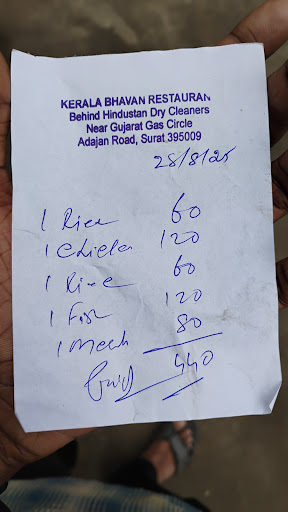 KERALA BHAVAN RESTAURAN
Behind Hindustan Dry Cleaners
Near Gujarat Gas Circle
Adajan Road, Surat 395009
28/8/25
1 Rice 60
1 Chicken 120
1 Rice 60
1 Fish 120
1 80
440